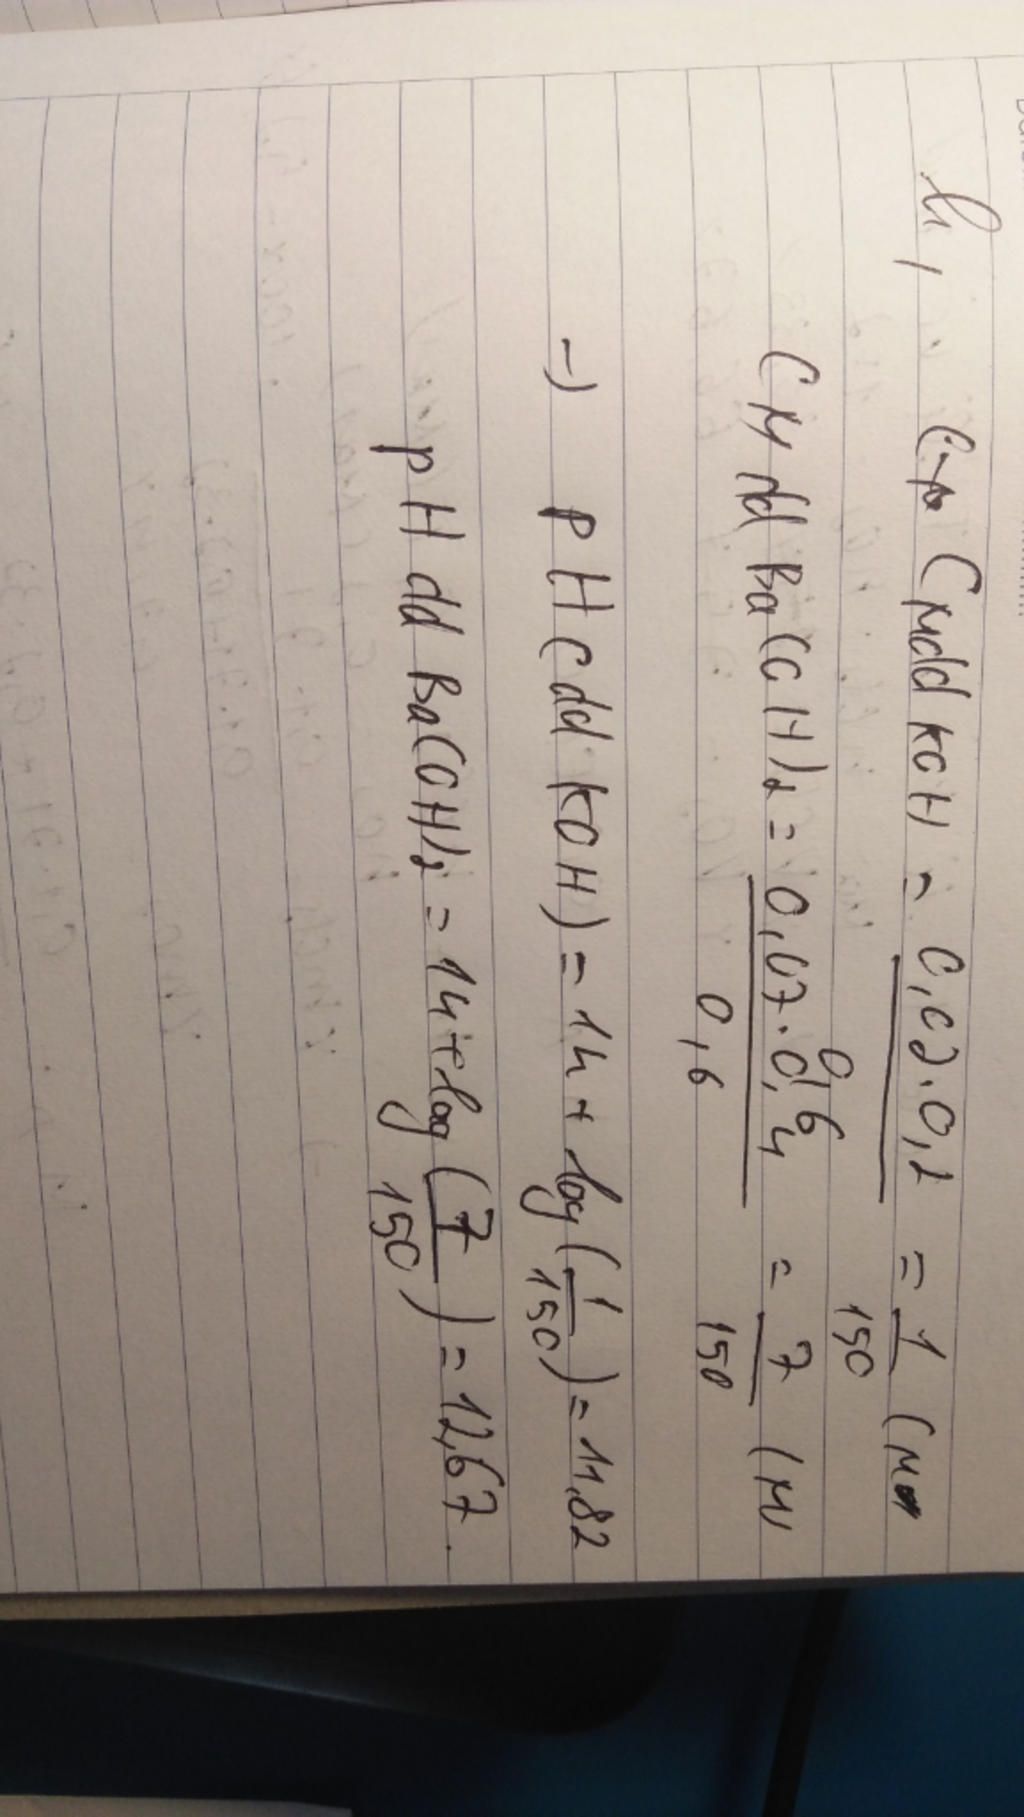 b, CM dd KOH = 0,02.0,2 / 0,6 = 1/150 (M
CM dd Ba(OH)2 = 0,07.0,4 / 0,6 = 7/150 (M)
-) pH (dd KOH) = 14 + log (1/150) = 11,82
pH dd Ba(OH)2 = 14 + log (7/150) = 12,67.